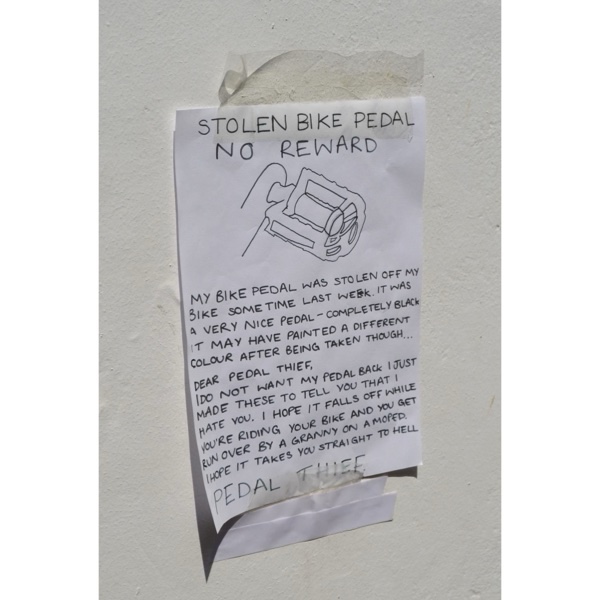 STOLEN BIKE PEDAL
NO REWARD
MY BIKE PEDAL WAS STOLEN OFF MY
BIKE SOMETIME LAST WEEK. IT WAS
A VERY NICE PEDAL - COMPLETELY BLACK
IT MAY HAVE PAINTED A DIFFERENT
COLOUR AFTER BEING TAKEN THOUGH...
DEAR PEDAL THIEF,
I DO NOT WANT MY PEDAL BACK I JUST
MADE THESE TO TELL YOU THAT I
HATE YOU. I HOPE IT FALLS OFF WHILE
YOU'RE RIDING YOUR BIKE AND YOU GET
RUN OVER BY A GRANNY ON A MOPED.
I HOPE IT TAKES YOU STRAIGHT TO HELL
PEDAL THIEF